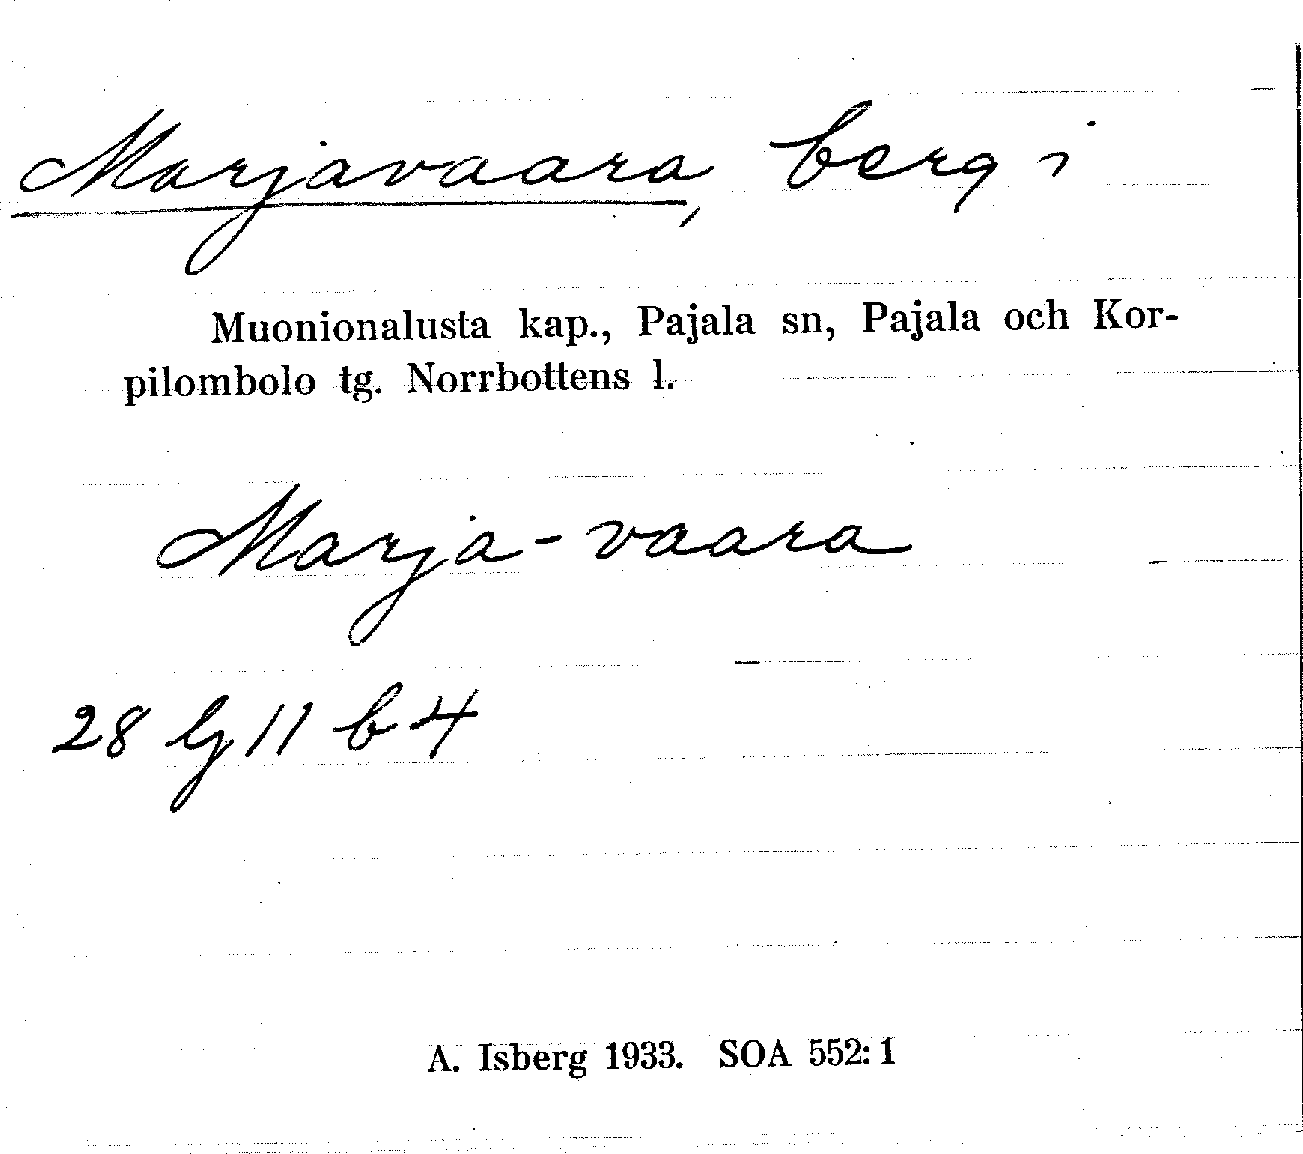 Marjavaara, berg i
Muonionalusta kap., Pajala sn, Pajala och Kor-
pilombolo tg. Norrbottens l.
Marja-vaara
28 lj 11 b 4
A. Isberg 1933. SOA 552:1